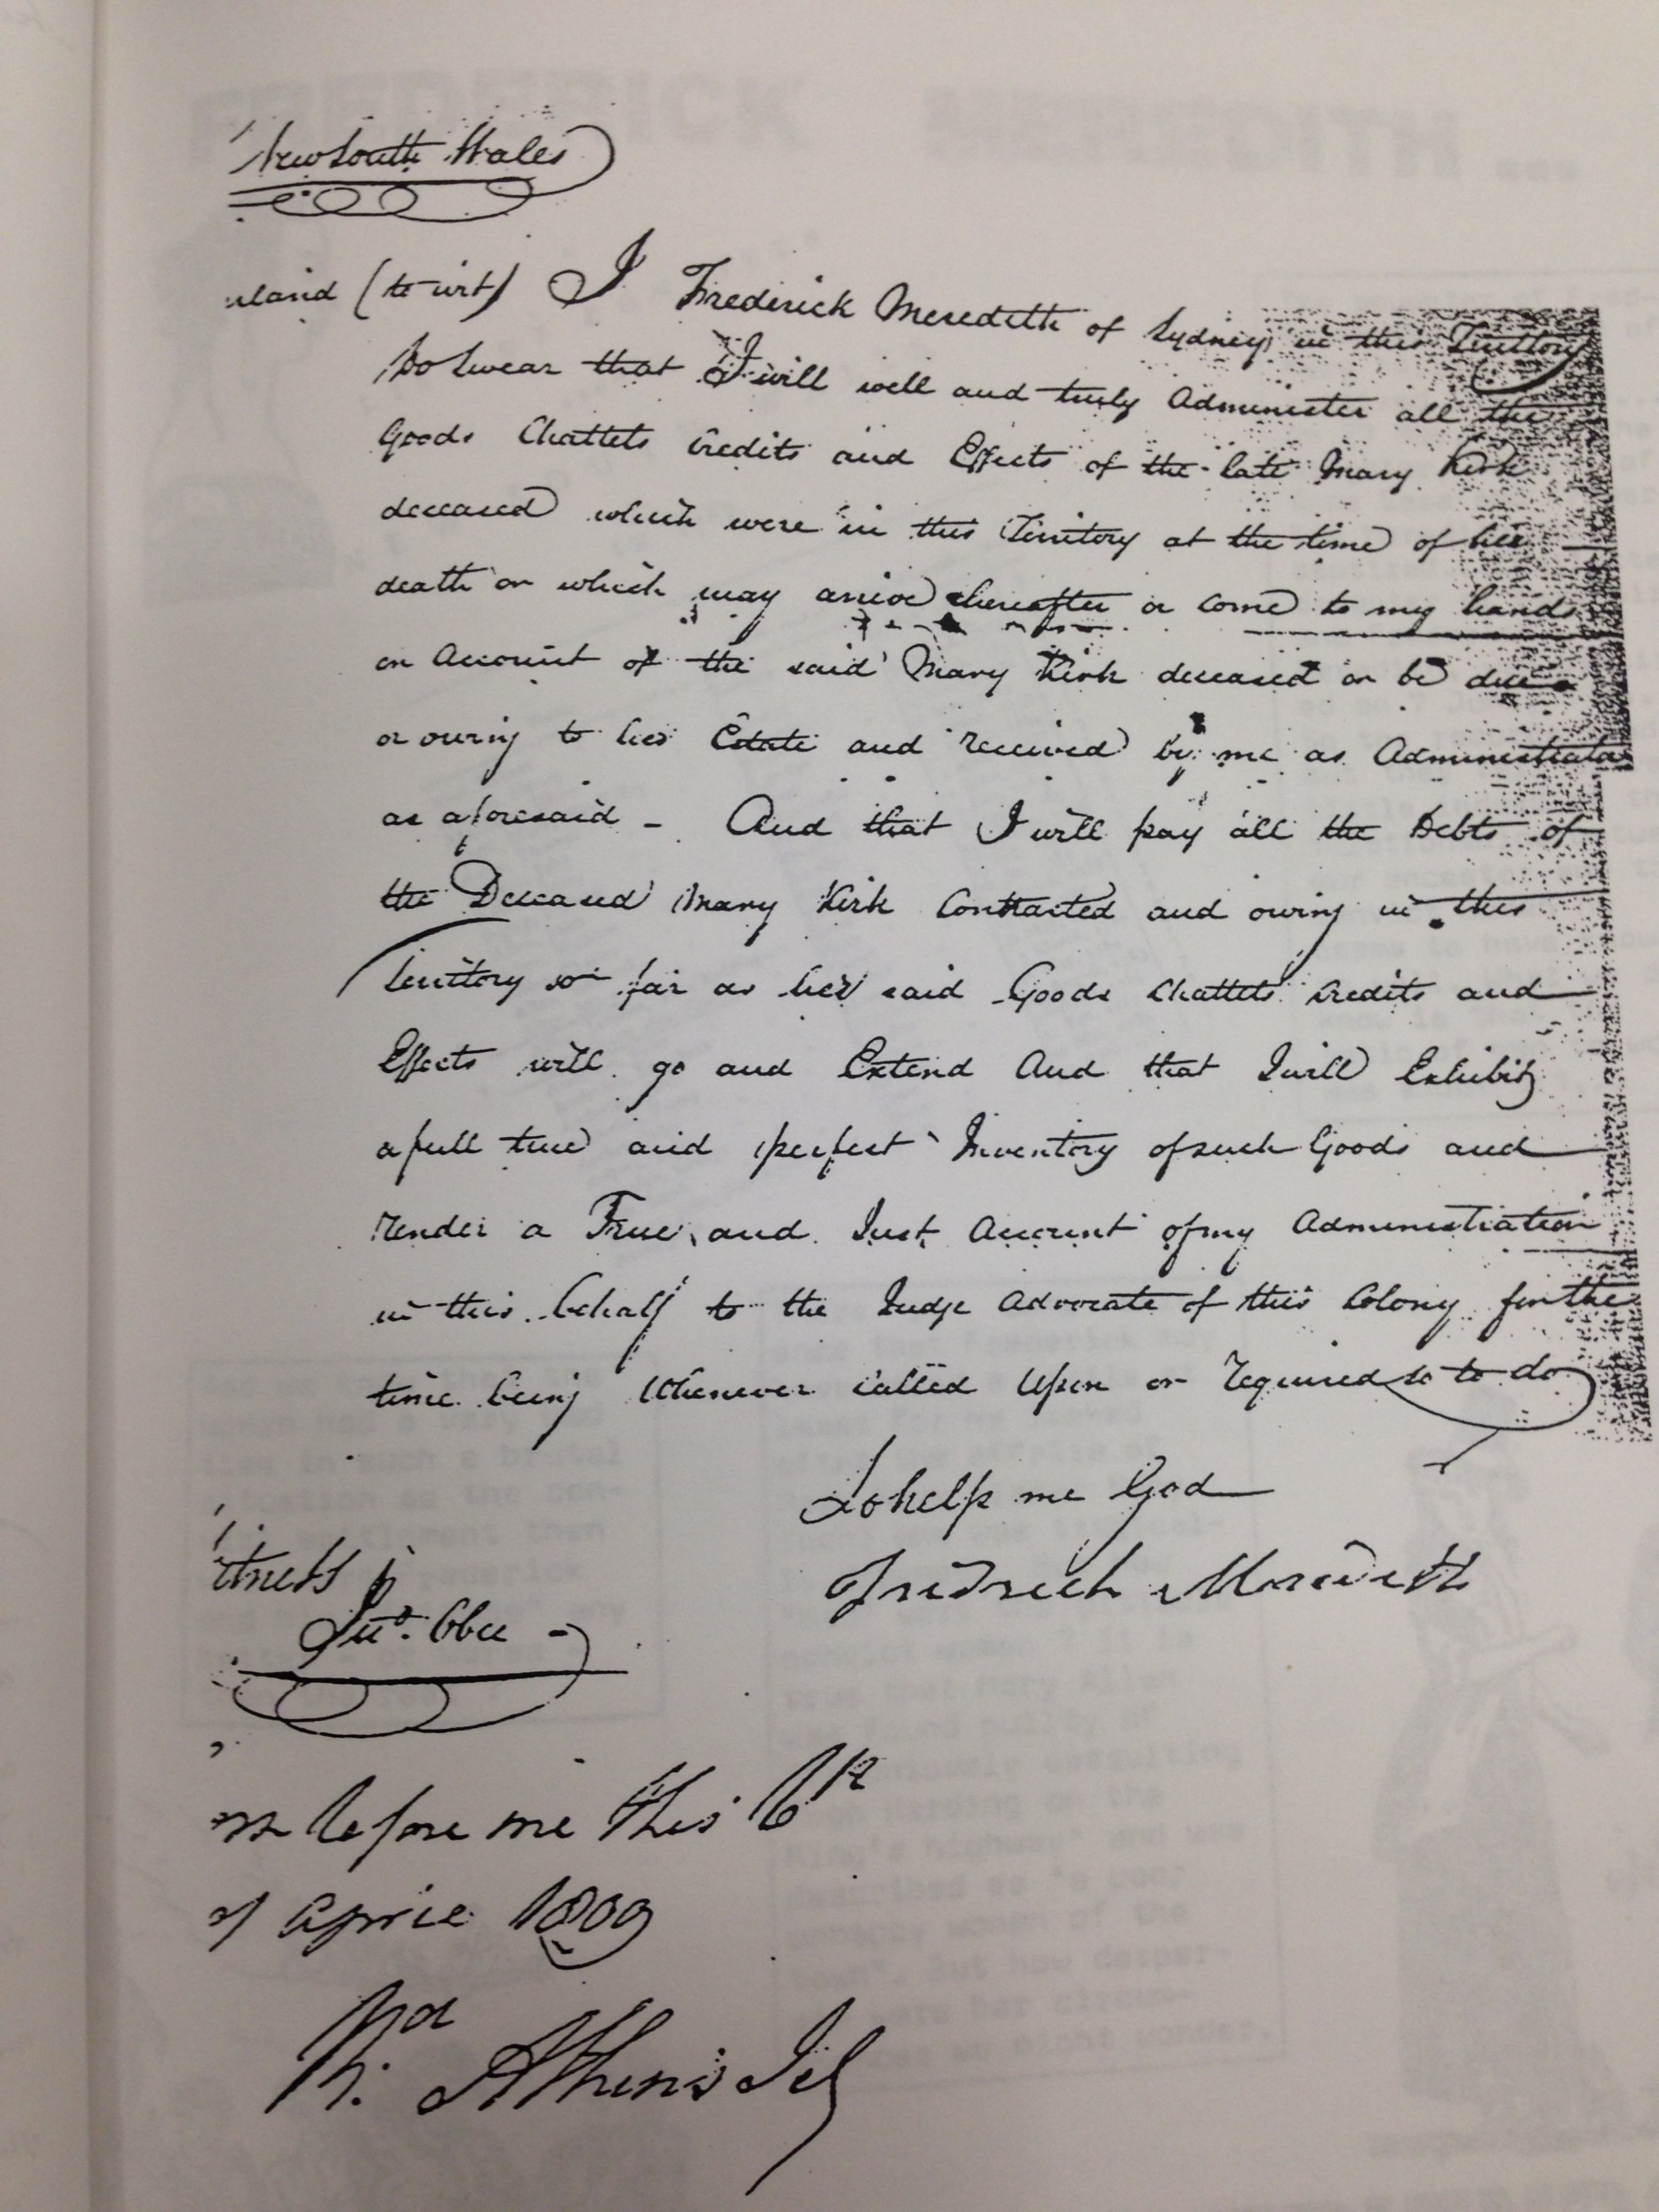 New South Wales
rland (to wit) I Frederick Meredith of Sydney in this Territory
Do Swear that I will well and truly Administer all the
Goods Chattels Credits and Effects of the late Mary Kirk
deceased which were in this Territory at the time of her
death or which may arrive hereafter or come to my hands
on Account of the said Mary Kirk deceased or be due
or owing to her Estate and received by me as Administrator
as aforesaid - And that I will pay all the Debts of
the Deceased Mary Kirk Contracted and owing in this
Territory so far as her said Goods Chattels Credits and
Effects will go and Extend And that I will Exhibit
a full true and perfect Inventory of such Goods and
render a True and Just Account of my Administration
in this behalf to the Judge Advocate of this Colony for the
time being Whenever called Upon or required so to do
So help me God
itness
Fredrick Meredith
before me this 6th
of April 1809
Rd